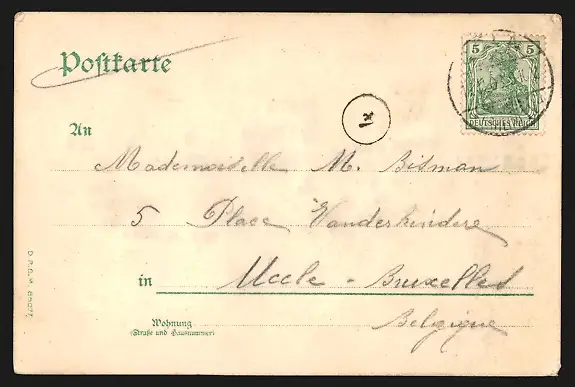 Postkarte
5 5
DEUTSCHES REICH
An
Mademoiselle M. Bisman
5 Place Vanderkindere
in Uccle - Bruxelles
Belgique
Wohnung
(Straße und Hausnummer)